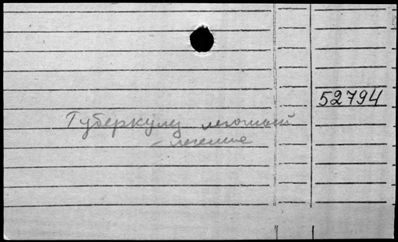 52794
Туберкулез легочный
- лечение